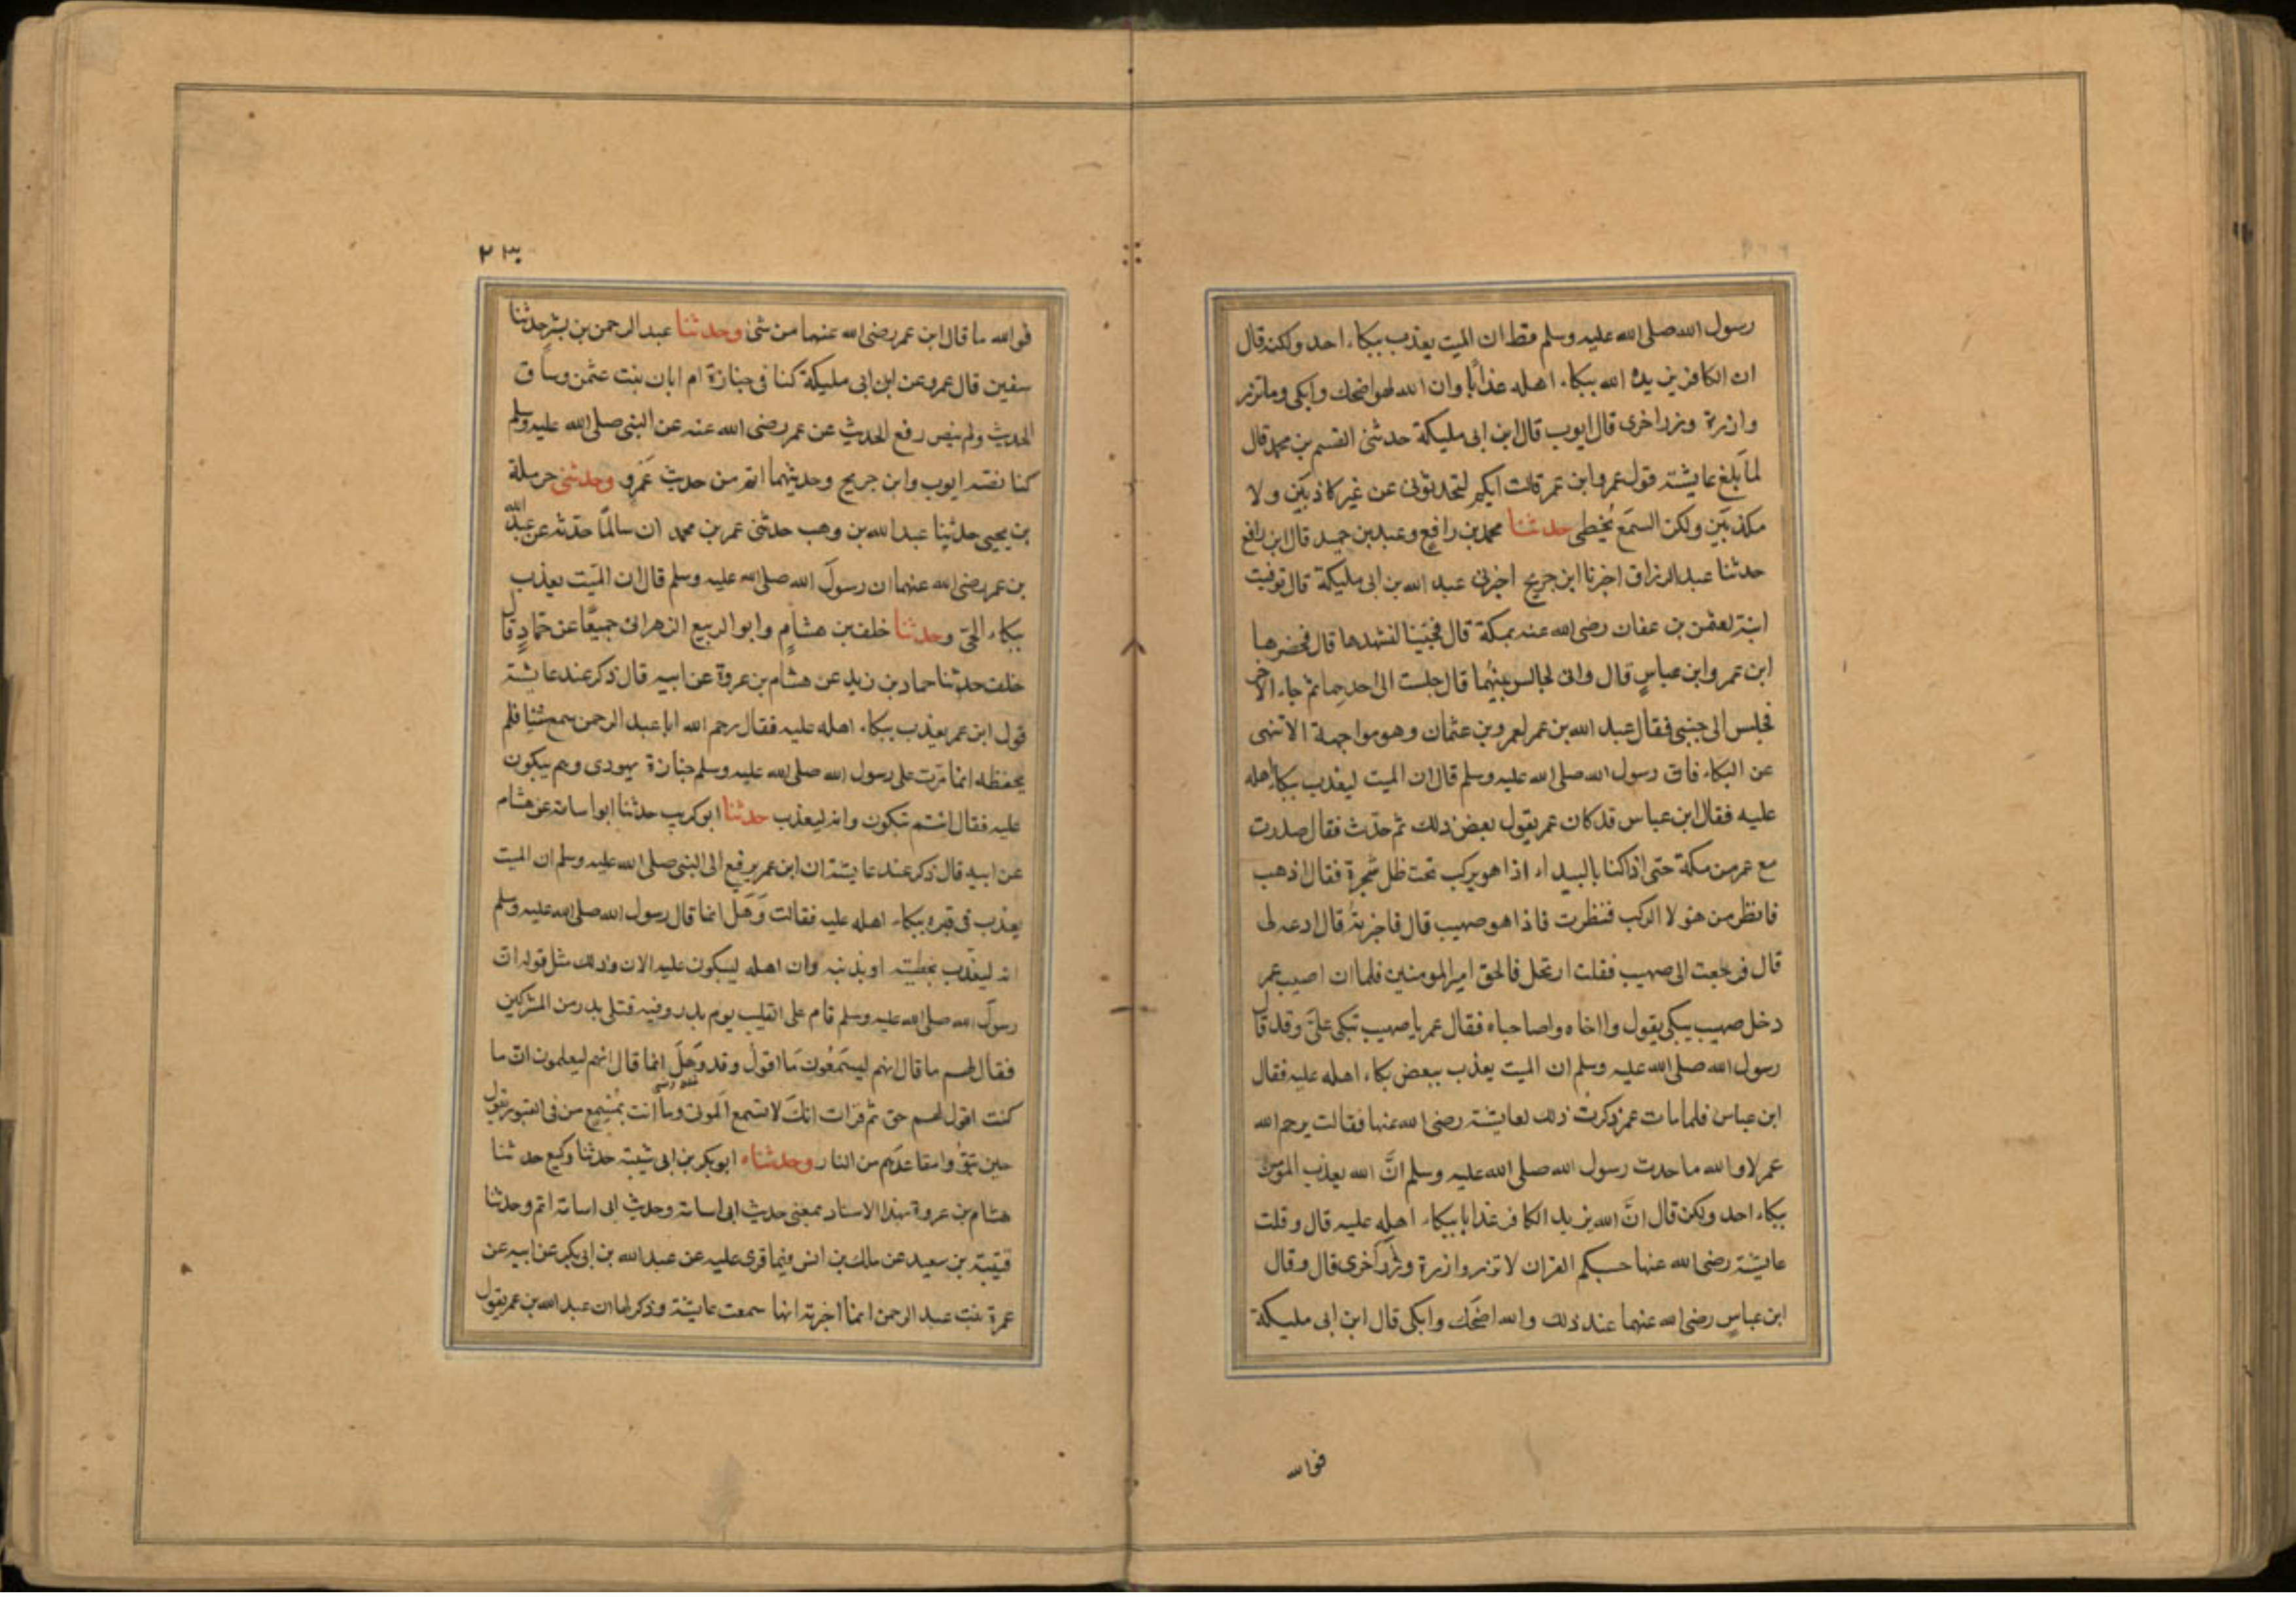 رسول الله صلى الله عليه وسلم قط ان الميت يعذب ببكاء احد ولكنه قال
ان الكافر يزيده الله ببكاء اهله عذابًا وان الله لهو اضحك وابكى وما تزر
وازرة وزر اخرى قال ايوب قال ابن ابى مليكة حدثنى القسم بن محمد قال
لما بلغ عايشة قول عمر وابن عمر قالت انكم لتحدثونى عن غير كاذبَين ولا
مكذبَين ولكن السمَع يُخطى حدثنا محمد بن رافعٍ وعبد بن حميد قال ابن رافع
حدثنا عبد الرزاق اخبرنا ابن جريج اخبرنى عبد الله بن ابى مليكة قال توفيت
ابنة لعثمن بن عفان رضى الله عنه بمكة قال فجئنا لنشهدها قال فحضرها
ابن عمر وابن عباسٍ قال وانى لجالس بينهُما قال جلست الى احدهِما ثم جاء الاخر
فجلس الى جنبى فقال عبد الله بن عمر لعمرو بن عثمان وهو مواجهة الا تنهى
عن البكاء فان رسول الله صلى الله عليه وسلم قال ان الميت ليعذب ببكاء اهله
عليه فقال ابن عباس قد كان عمر يقول بعض ذلك ثم حدّث فقال صدرت
مع عمر من مكة حتى اذا كنا بالبيداء اذا هو بركب تحت ظل شجرة فقال اذهب
فانظر من هولا الركب فنظرت فاذا هو صهيب قال فاخبرتهُ قال ادعه لى
قال فرجعت الى صهيب فقلت ارتحل فالحق امير المومنين فلما ان اصيب عمر
دخل صهيب يبكى يقول وا اخاه واصاحباه فقال عمر يا صهيب تبكى علىَّ وقد قال
رسول الله صلى الله عليه وسلم ان الميت يعذب ببعض بكاء اهله عليه فقال
ابن عباس فلما مات عمر ذكرت ذلك لعايشة رضى الله عنها فقالت يرحم الله
عمر لا والله ما حدث رسول الله صلى الله عليه وسلم انَّ الله يعذب المؤمن
ببكاء احد ولكن قال انَّ الله يزيد الكافر عذابا ببكاء اهله عليه قال وقلت
عايشة رضى الله عنها حسبكم القران لا تزر وازرة وِزْرَ اُخرى قال وقال
ابن عباسٍ رضى الله عنهما عند ذلك والله اضحَك وابكى قال ابن ابى مليكة
فوالله
٢٣٠
فوالله ما قال ابن عمر رضى الله عنهما من شئ وحدثنا عبد الرحمن بن بشر حدثنا
سفين قال عمرو عن ابن ابى مليكة كنا فى جنازة ام ابان بنت عثمن وساق
الحديث ولم ينص رفع الحديث عن عمر رضى الله عنه عن النبى صلى الله عليه وسلم
كما نصّه ايوب وابن جريج وحديثهما اتم من حديث عَمْرو وحدثنى حرملة
بن يحيى حدثنا عبد الله بن وهب حدثنى عمر بن محمد ان سالمًا حدّثه عن عبد الله
بن عمر رضى الله عنهما ان رسولَ الله صلى الله عليه وسلم قال ان الميّت يعذب
ببكاء الحىّ وحدثنا خلف بن هشامٍ وابو الربيع الزهرانى جميعًا عن حمّادٍ قال
خلف حدثنا حماد بن زيد عن هشام بن عروة عن ابيه قال ذكر عند عايشة
قول ابن عمر يعذب ببكاء اهله عليه فقال رحم الله ابا عبد الرحمن سمع شئيا فلم
يحفظه انما مرّت على رسول الله صلى الله عليه وسلم جنازة يهودى وهم يبكون
عليه فقال انتم تبكون وانه ليعذب حدثنا ابو كريب حدثنا ابو اسامة عن هشام
عن ابيه قال ذكر عند عايشة ان ابن عمر يرفع الى النبى صلى الله عليه وسلم ان الميت
يعذب فى قبره ببكاء اهله عليه فقالت وَهَلَ انما قال رسول الله صلى الله عليه وسلم
انه ليعذب بخطيئته او بذنبه وان اهله ليبكون عليه الان وذلك مثل قوله ان
رسولَ الله صلى الله عليه وسلم قام على القليب يوم بدر وفيه قتلى بدر من المشركين
فقال لهم ما قال انهم ليسَمعُون مَا اقولُ وقد وَهلَ انما قال انهم ليعلمون ان ما
كنت اقول لهم حق ثم قرات انكَ لا تسمع الموتى وما انت بمُسْمِعٍ من فى القبور يقول
حين تبوّوا مقاعدهم من النار وحدثناه ابو بكر بن ابى شيبة حدثنا وكيع حدثنا
هشام بن عروة بهذا الاسناد بمعنى حديث ابى اسامة وحديث ابى اسامة اتم وحدثنا
قتيبة بن سعيد عن مالك بن انس فيما قرى عليه عن عبد الله بن ابى بكر عن ابيه عن
عمرة بنت عبد الرحمن انها اخبرته انها سمعت عايشة وذكر لها ان عبد الله بن عمر يقول